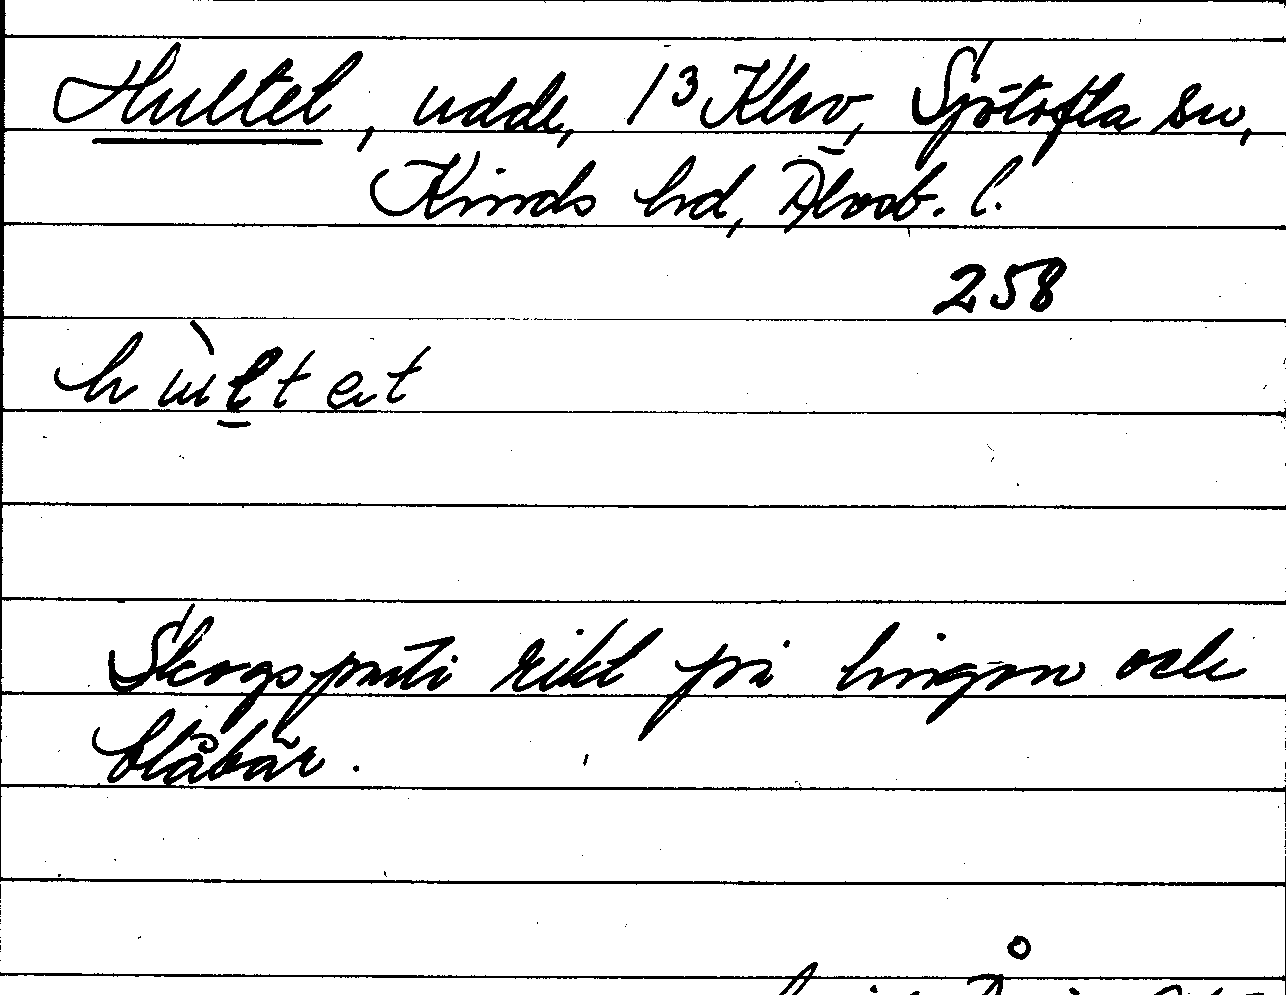 Hultet, udde, 1³ Klev, Sjötofta sn,
Kinds hd, Älvsb. l.
258
hu̇̀ltet
Skogsparti rikt på lingon och
blåbär.